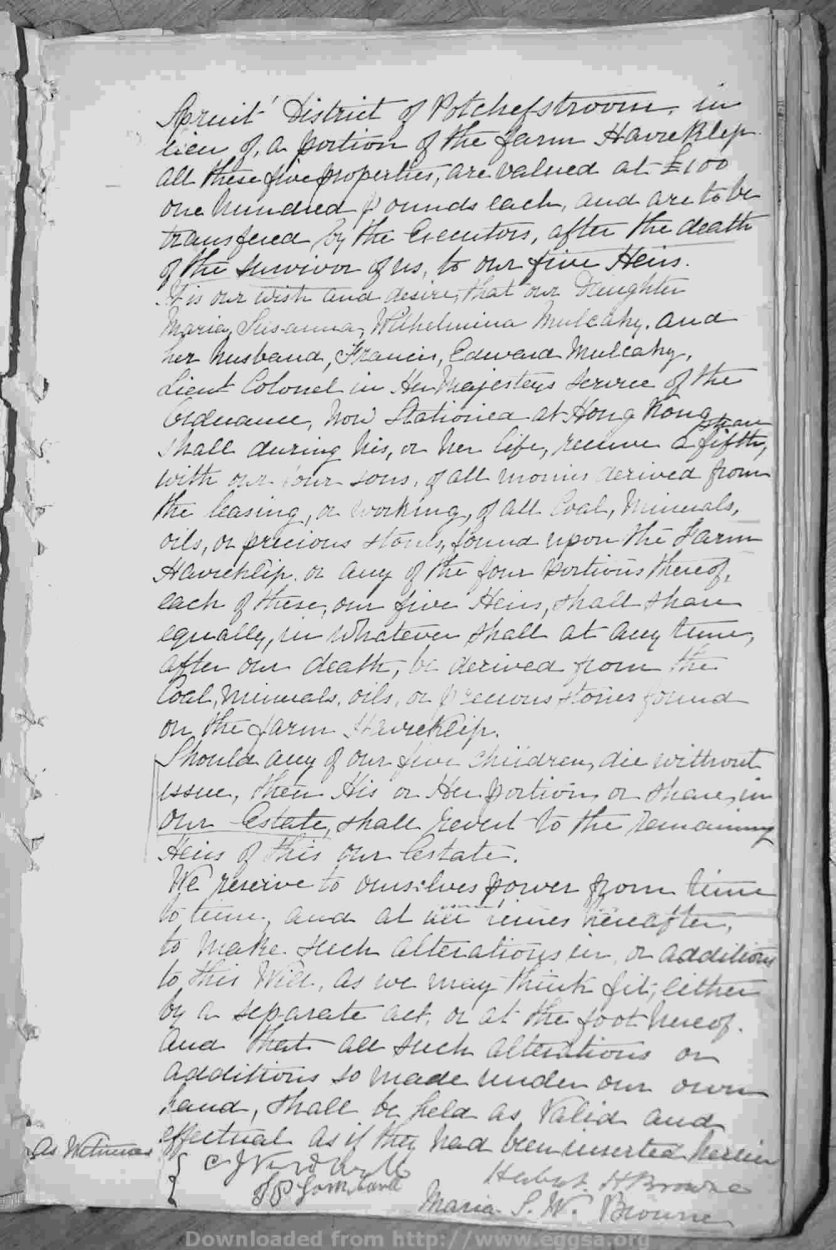 Spruit' District of Potchefstroom, in
lieu of, a portion of the farm Havreklip
all these five properties, are valued at £100
one hundred pounds each, and are to be
transfered by the Executors, after the death
of the survivor of us, to our five Heirs.
It is our wish and desire, that our Daughter
Maria, Susanna, Wilhelmina Mulcahy, and
her husband, Francis, Edward Mulcahy,
Lieut Colonel in Her Majesteys service of the
Ordnance, now Stationed at Hong Kong
shall during his, or her life, receive a fifth share,
with our four sons, of all monies derived from
the leasing, or working, of all Coal, Minerals,
oils, or precious stones, found upon the Farm
Havreklip, or any of the four portions thereof,
each of these, our five Heirs, shall share
equally, in whatever shall at any time,
after our death, be derived from the
Coal, Minerals, oils, or precious stones found
on the farm Havreklip.
Should any of our five children, die without
issue, then His or Her portion, or share, in
our Estate, shall revert to the remaining
Heirs of this our Estate.
We reserve to ourselves power from time
to time, and at all times hereafter,
to make such alterations in, or additions
to this Will, as we may think fit, either
by a separate act, or at the foot hereof.
and that all such alterations or
additions so made under our own
hand, shall be held as valid and
effectual as if they had been inserted herein
As Witnesses
Herbert H Browne
Maria S. W. Browne
Downloaded from http://www.eggsa.org